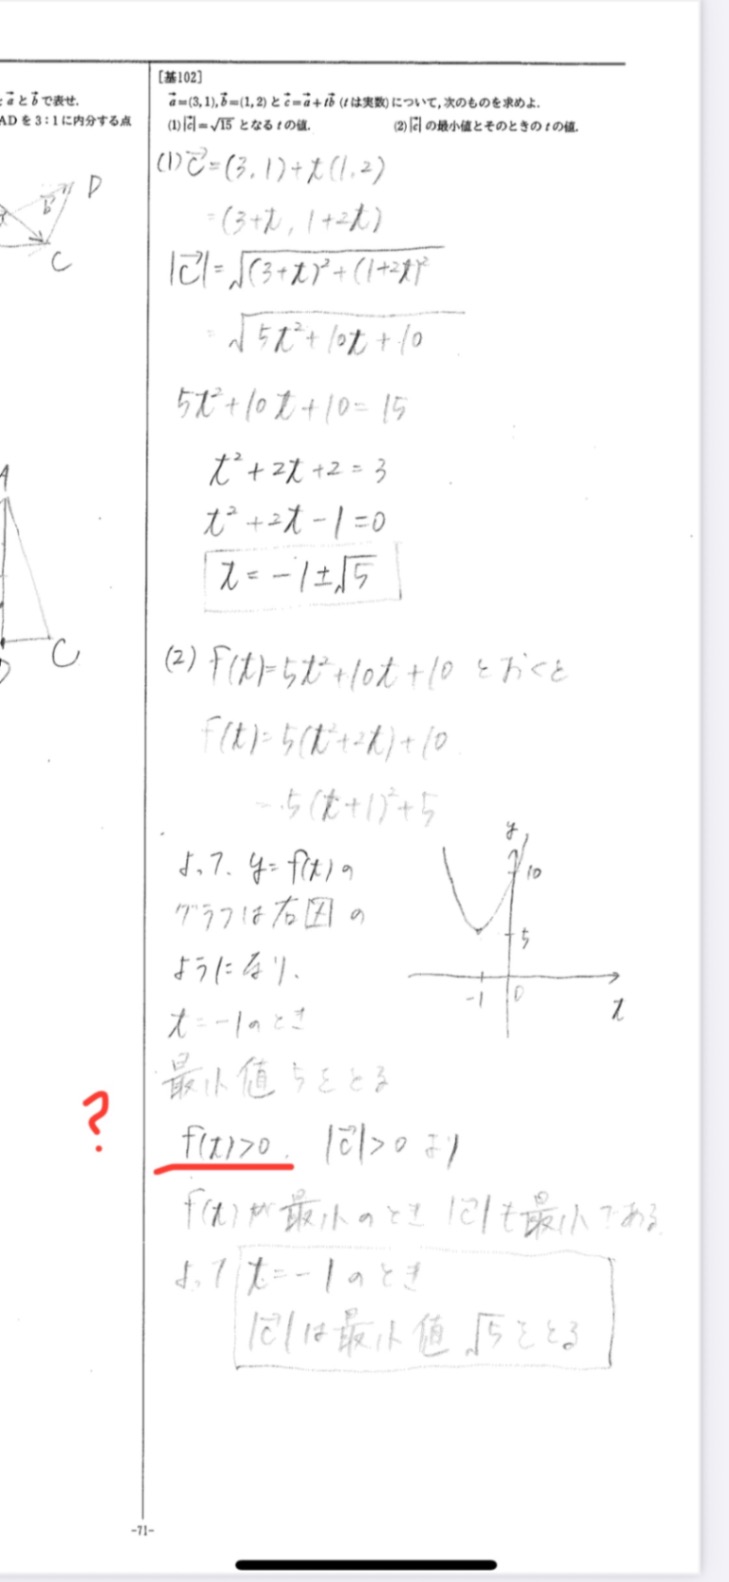 [基102]
a⃗=(3,1), b⃗=(1,2) と c⃗=a⃗+tb⃗ (tは実数)について,次のものを求めよ.
(1)|c⃗|=√15 となる t の値.
(2)|c⃗| の最小値とそのときの t の値.
a⃗とb⃗で表せ.
ADを3:1に内分する点
D
b⃗
C
A
C
D
(1) c⃗=(3,1)+t(1,2)
=(3+t, 1+2t)
|c⃗|=√(3+t)²+(1+2t)²
=√5t²+10t+10
5t²+10t+10=15
t²+2t+2=3
t²+2t-1=0
t=-1±√5
(2) f(t)=5t²+10t+10 とおくと
f(t)=5(t²+2t)+10
=5(t+1)²+5
よって、y=f(t)の
グラフは右図の
ようになり、
t=-1のとき
最小値5をとる
y
10
5
-1
0
t
?
f(t)>0、|c⃗|>0より
f(t)が最小のとき|c⃗|も最小である
よって t=-1のとき
|c⃗|は最小値√5をとる
-71-